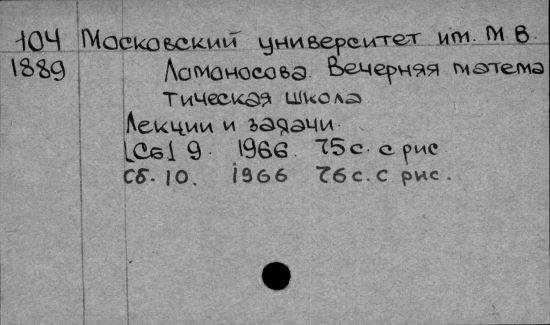 104 Московский университет им. М В.
1889 Ломоносова. Вечерняя матема
тическая школа
Лекции и задачи.
[Сб] 9. 1966. 75 с. с рис
Сб. 10. 1966 76 с. с рис.